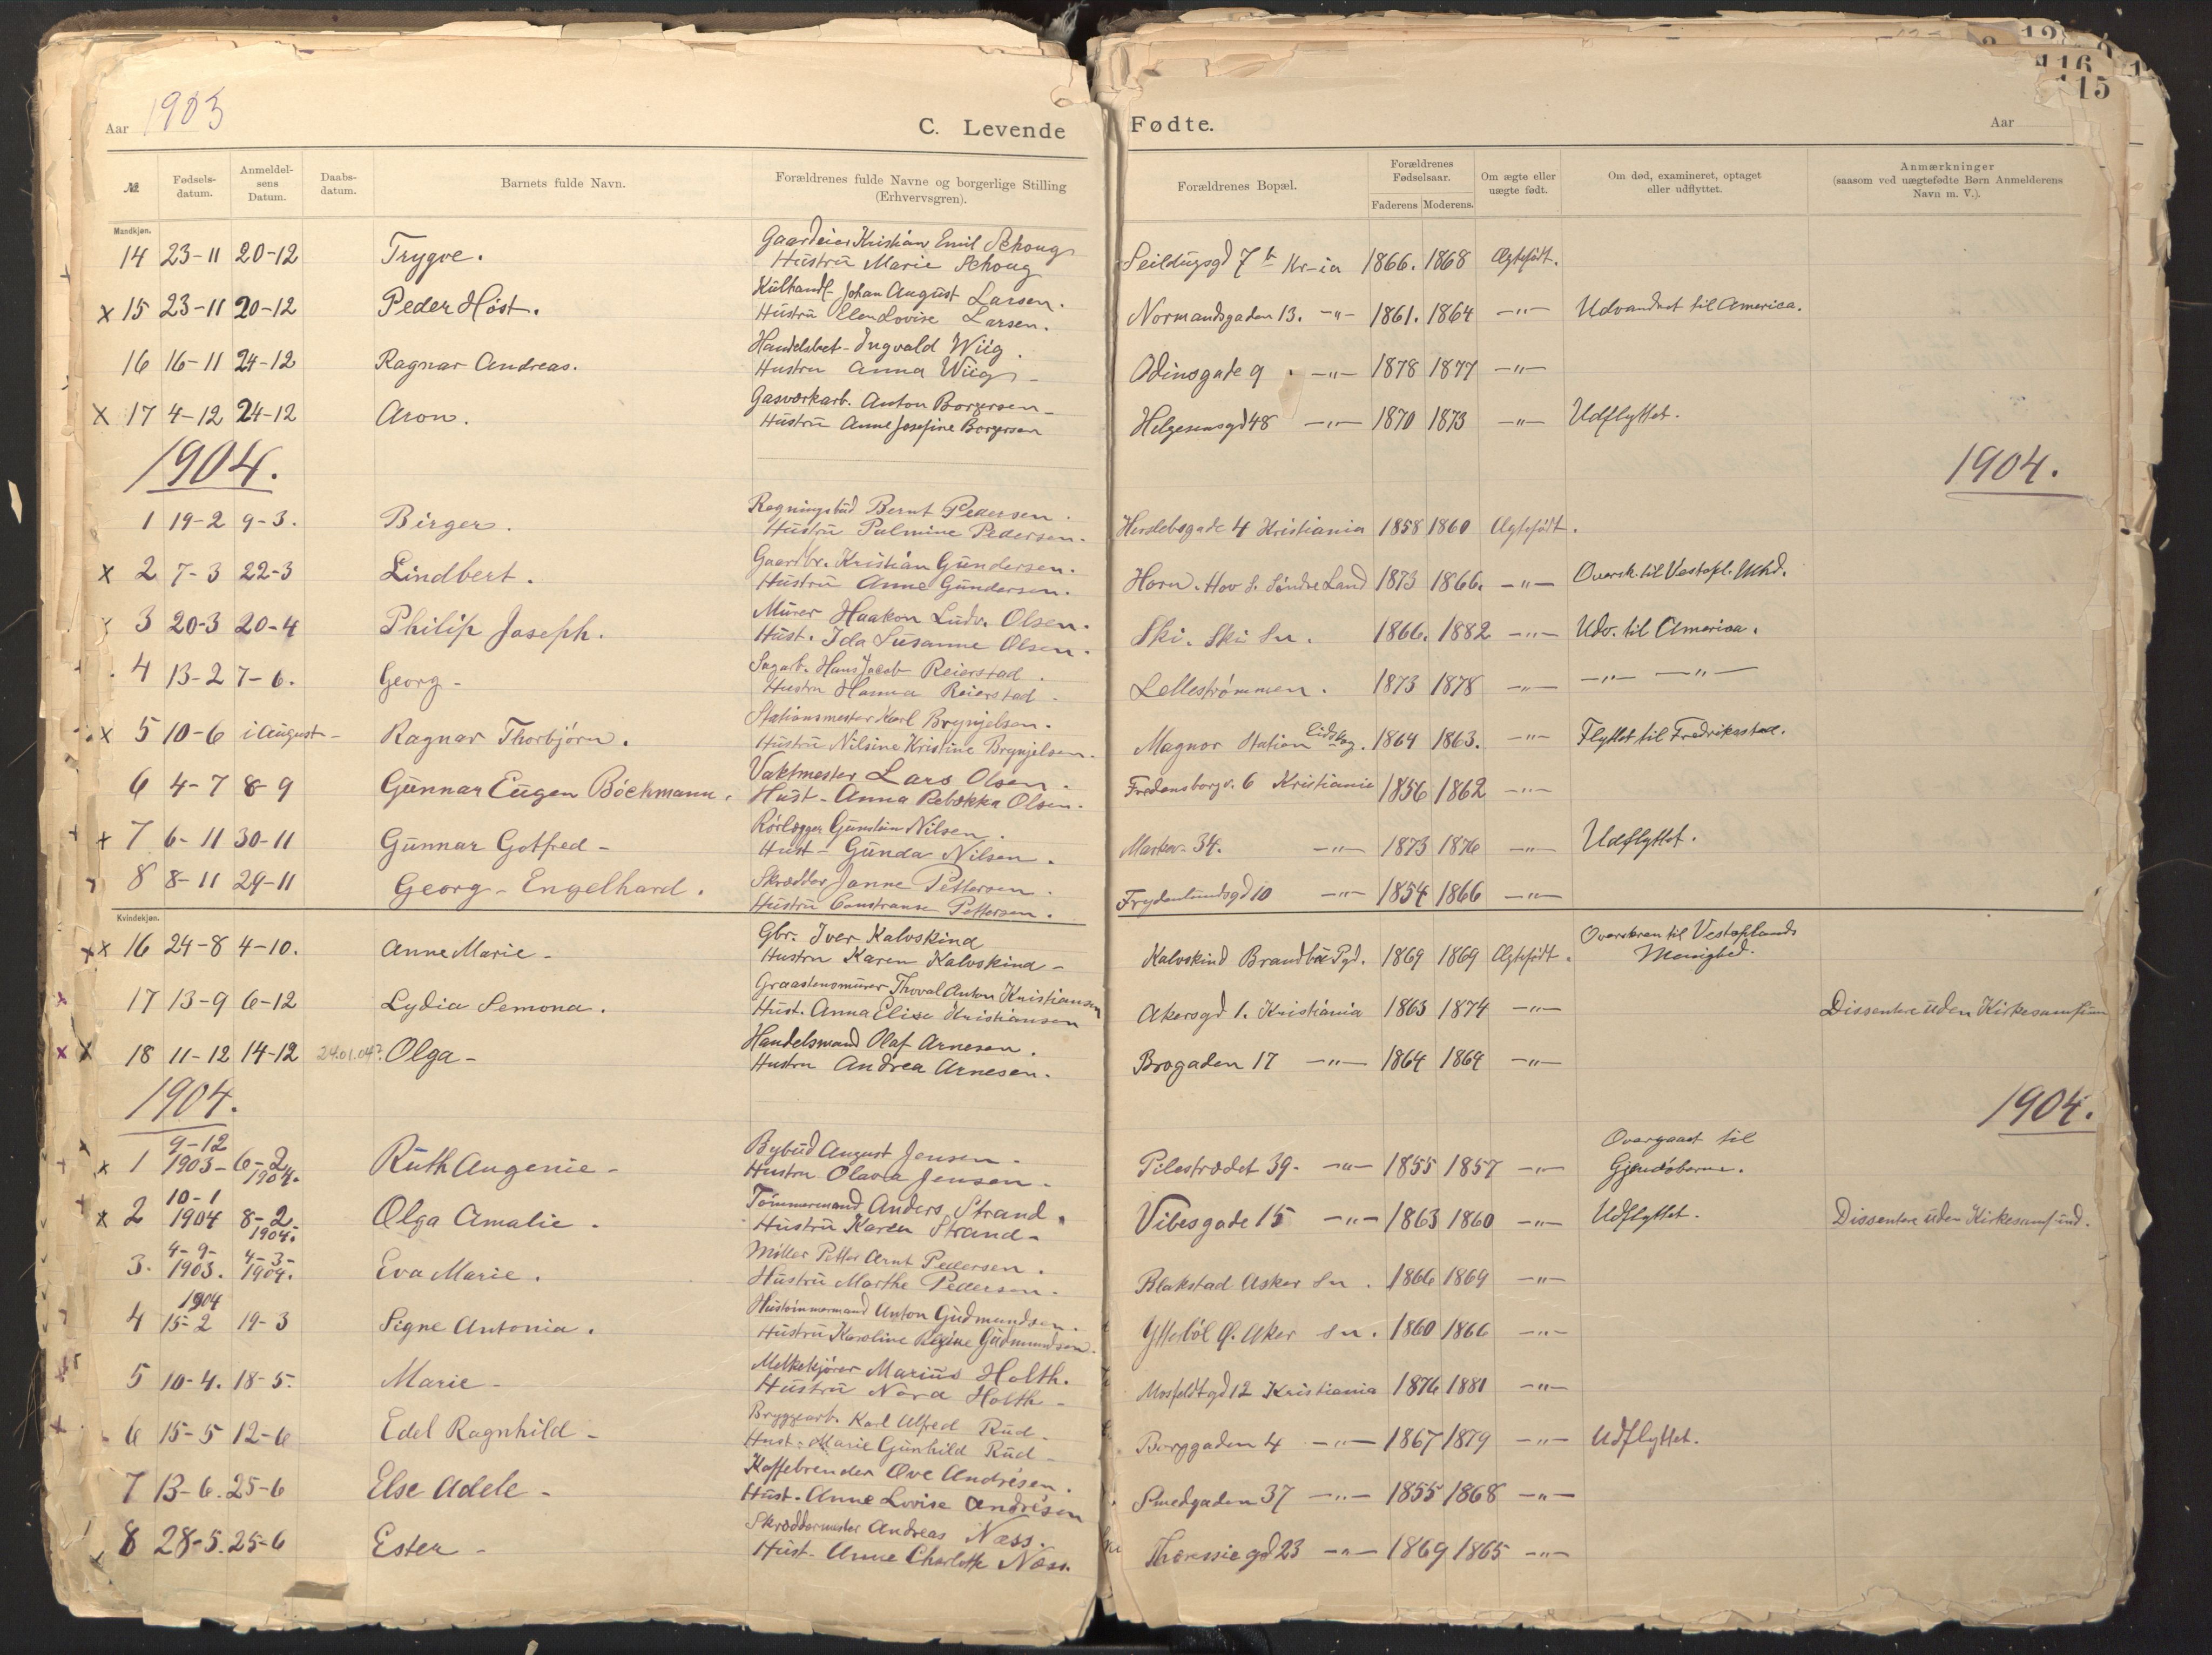 Aar 1903
C. Levende Fødte.
Aar
115
116
№ Fødselsdatum. Anmeldelsens Datum. Daabsdatum. Barnets fulde Navn. Forældrenes fulde Navne og borgerlige Stilling (Erhvervsgren). Forældrenes Bopæl. Forældrenes Fødselsaar. Faderens Moderens. Om ægte eller uægte født. Om død, examineret, optaget eller udflyttet. Anmærkninger (saasom ved uægtefødte Børn Anmelderens Navn m. V.).
Mandkjøn.
14 23-11 20-12 Trygve. Gaardeier Kristian Emil Schoug Seildugsgd 7b Kr-ia 1866. 1868 Ægtefødt.
Hustru Marie Schoug
x 15 23-11 20-12 Peder Høst. Kulhandl- Johan August Larsen. Normandsgaden 13. -"- 1861. 1864 -"- Udvandret til America.
Hustru Elen Lovise Larsen.
16 16-11 24-12 Ragnar Andreas. Handelsbet- Ingvald Wiig. Odinsgade 9 -"- 1878 1877 -"-
Hustru Anna Wiig -
x 17 4-12 24-12 Aron. Gasværkarb. Anton Borgersen - Helgesensgd 48 -"- 1870 1873 -"- Udflyttet.
Hustru Anne Josefine Borgersen
1904. 1904.
1 19-2 9-3. Birger. Regningsbud Bernt Pedersen. Herslebsgade 4 Kristiania 1858 1860 Ægtefødt.
Hustru Palmine Pedersen.
x 2 7-3 22-3 Lindbert. Gaardbr. Kristian Gundersen. Horn. Hov S. Søndre Land 1873 1866. -"- Oversk. til Vestopl. Mhd.
Hustru Anne Gundersen.
x 3 20-3 20-4 Philip Joseph. Murer Haakon Ludv. Olsen. Ski. Ski Sn. 1866. 1882 -"- Udv. til America.
Hust. Ida Susanne Olsen.
4 13-2 7-6. Georg - Sagarb. Hans Jacob Reierstad. Lellestrømmen. 1873 1878 -"- -"- -"-
Hustru Hanna Reierstad -
x 5 10-6 i August - Ragnar Thorbjørn. Stationsmester Karl Brynjelsen. Magnor Station Eidskog. 1864 1863. -"- Flyttet til Fredrikstad.
Hustru Nilsine Kristine Brynjelsen.
6 4-7 8-9 Gunnar Eugen Böckmann. Vaktmester Lars Olsen. Fredensborgv. 6 Kristiania 1856 1862 -"-
Hust- Anna Rebekka Olsen.
x 7 6-11 30-11 Gunnar Gotfred - Rørlægger Gunstein Nilsen. Markv- 34. -"- 1873 1876 -"- Udflyttet.
Hust- Gunda Nilsen.
8 8-11 29-11 Georg - Engelhard. Skrædder Janne Pettersen. Frydenlundsgd 10 -"- 1854 1866 -"-
Hustru Constranse Pettersen.
Kvindekjøn.
xx 16 24-8 4-10. Anne Marie - Gbr. Iver Kalvskind Kalvskind Brandbu Pgd. 1869 1869 Ægtefødt. Overskreven til Vestoplands Menighed.
Hustru Karen Kalvskind -
x 17 13-9 6-12 Lydia Semona. Graastensmurer Thoval Anton Kristiansen Akersgd 1. Kristiania 1863 1874 -"- Dissentere uden Kirkesamfund
Hust. Anna Elise Kristiansen
x x 18 11-12 14-12 24.01.04? Olga - Handelsmand Olaf Arnesen. Brogaden 17 -"- 1864 1869 -"-
Hustru Andrea Arnesen.
1904. 1904.
x 1 9-12 1903- 6-2 1904. Ruth Augenie - Bybud August Jensen - Pilestrædet 39- -"- 1855 1857 -"- Overgaaet til Gjendøberne.
Hustru Olava Jensen -
x 2 10-1 1904 8-2 1904. Olga Amalie. Tømmermand Anders Strand. Vibesgade 15 -"- 1863 1860 -"- Udflyttet. Dissentere uden Kirkesamfund.
Hustru Karen Strand -
3. 4-9- 1903. 4-3- 1904. Eva Marie. Møller Petter Arnt Pedersen. Blakstad Asker Sn. 1866 1869 -"-
Hustru Marthe Pedersen.
4 1904 15-2 19-3 Signe Antonia. Hustømmermand Anton Gudmundsen. Ytterbøl Ø. Aker Sn. 1860 1866 -"-
Hustru Karoline Regine Gudmundsen.
5 10-4. 18-5. Marie - Melkekjører Marius Holth. Mosfeldtgd 12 Kristiania 1876 1881 -"-
Hustru Nora Holth -
6 15-5 12-6 Edel Ragnhild - Bryggearb. Karl Alfred Rud. Borggaden 4 -"- 1867 1879 -"- Udflyttet.
Hust. Marie Gunhild Rud -
7 13-6. 25-6 Else Adele - Kaffebrender Ove Andrésen. Smedgaden 37 -"- 1855 1868 -"-
Hust. Anne Lovise Andrésen
8 28-5. 25-6 Ester - Skræddermester Andreas Næss. gd 23 -"- 1869 1865 -"-
Hust- Anne Charlotte Næss.